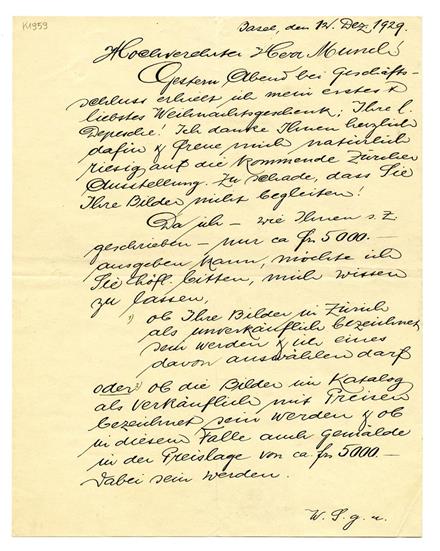 K1959
Basel, den 12. Dez. 1929.
Hochverehrter Herr Munch!
Gestern Abend bei Geschäfts-
schluss erhielt ich mein erstes &
liebstes Weihnachtsgeschenk: Ihre l.
Depesche! Ich danke Ihnen herzlich
dafür & freue mich natürlich
riesig auf die kommende Zürcher
Ausstellung. Zu schade, dass Sie
Ihre Bilder nicht begleiten!
Da ich – wie Ihnen s. Z.
geschrieben – nur ca frs 5000.–
ausgeben kann, möchte ich
Sie höfl. bitten, mich wissen
zu lassen,
1) ob Ihre Bilder in Zürich
als unverkäuflich bezeichnet
sein werden & ich eines
davon auswählen darf
oder 2) ob die Bilder im Katalog
als verkäuflich mit Preisen
bezeichnet sein werden & ob
in diesem Falle auch Gemälde
in der Preislage von ca. frs 5000.–
dabei sein werden.
W. S. g. u.